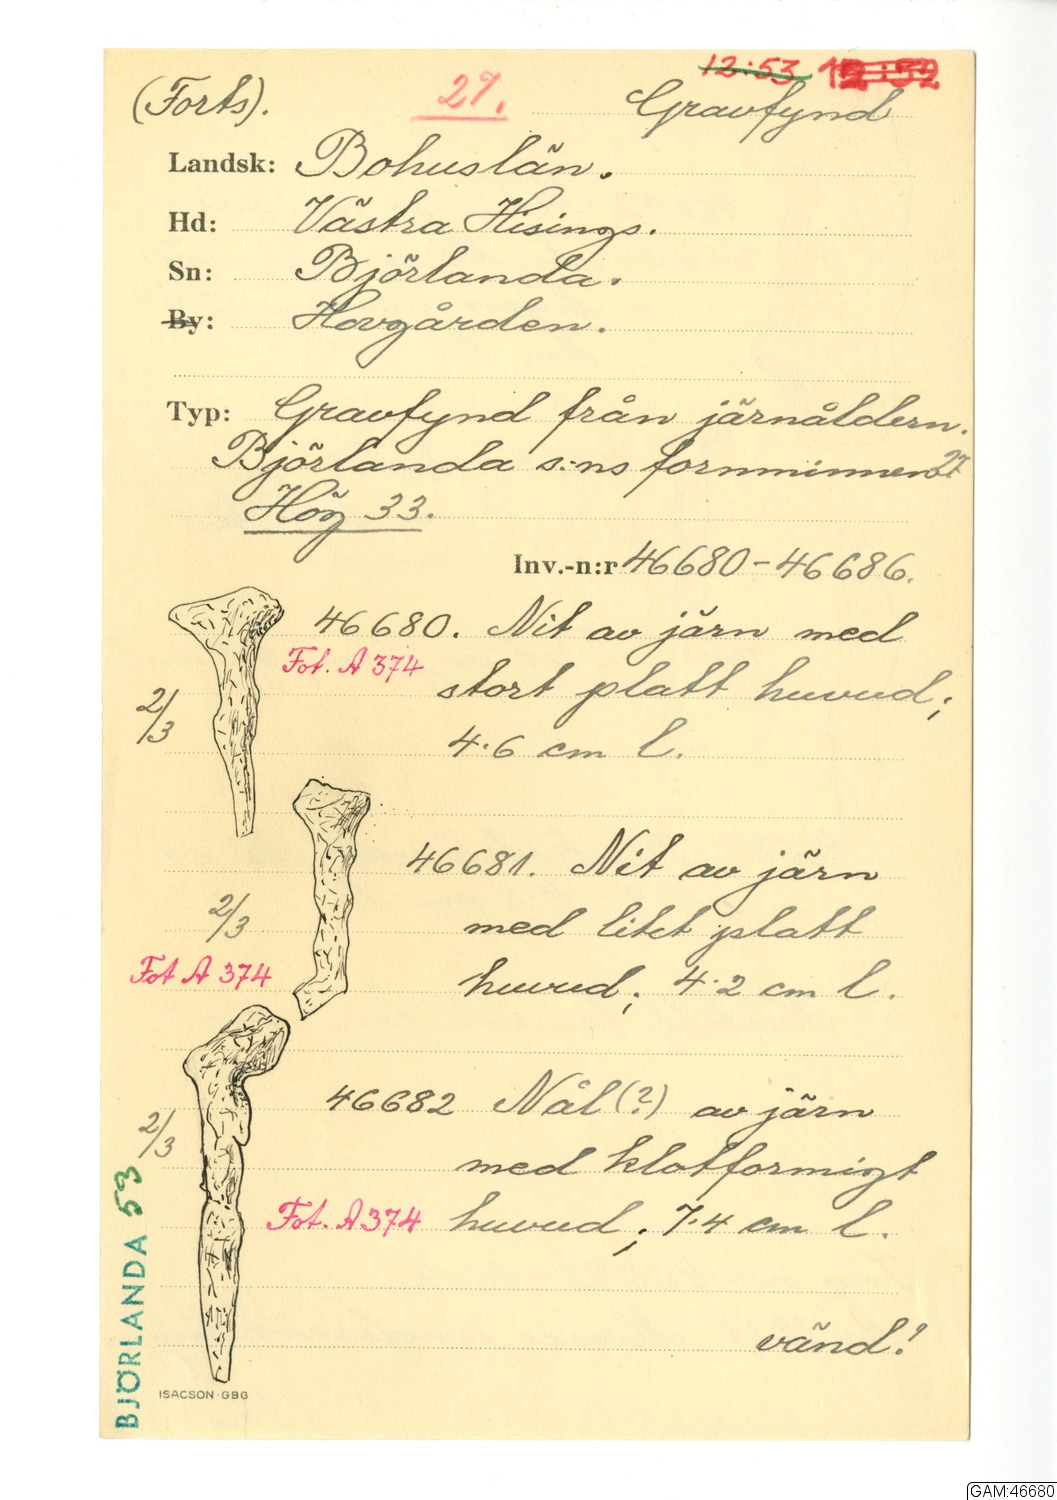 12:53
(Forts).
27.
Gravfynd
Landsk: Bohuslän.
Hd: Västra Hisings.
Sn: Björlanda.
By: Hovgården.
Typ: Gravfynd från järnåldern.
Björlanda s:ns fornminnen 27
Hög 33.
Inv.-n:r 46680-46686.
46680. Nit av järn med
Fot. A 374
stort platt huvud;
2/3
4.6 cm l.
46681. Nit av järn
2/3
med litet platt
Fot A 374
huvud; 4.2 cm l.
46682 Nål(?) av järn
2/3
med klotformigt
Fot. A 374
huvud; 7.4 cm l.
vänd!
BJÖRLANDA 53
ISACSON·GBG
GAM:46680